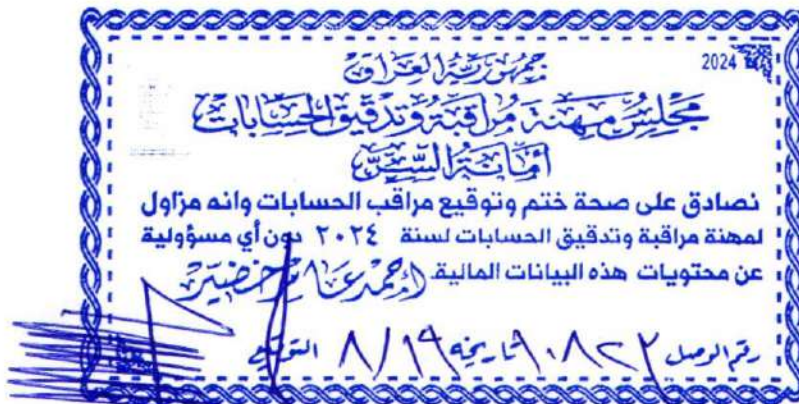 2024
جمهورية العراق
مجلس مهنة مراقبة وتدقيق الحسابات
أمانة السر
نصادق على صحة ختم وتوقيع مراقب الحسابات وانه مزاول
لمهنة مراقبة وتدقيق الحسابات لسنة ٢٠٢٤ دون أي مسؤولية
عن محتويات هذه البيانات المالية احمد عامر خضير
رقم الوصل تاريخه ٨/١٩ التوقيع